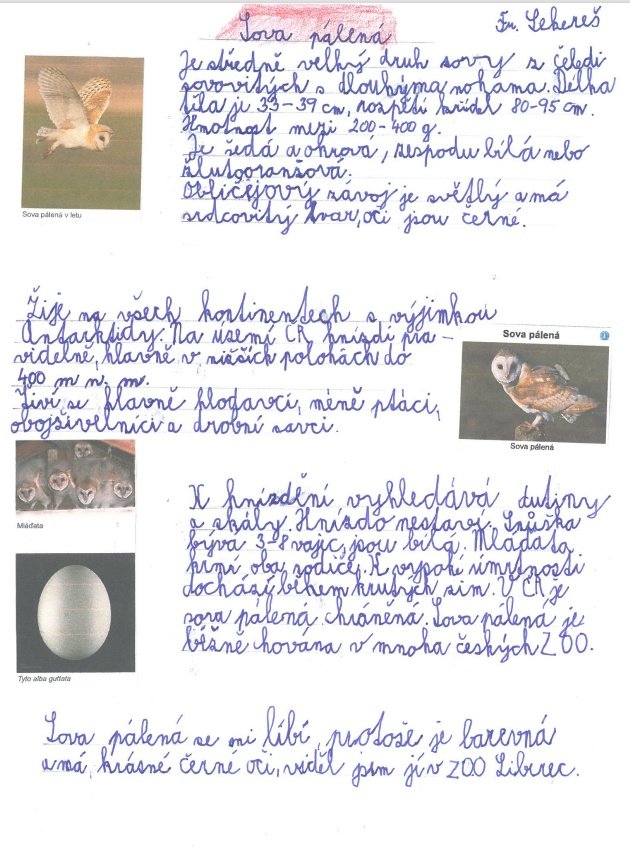 Sova pálená
Fr. Sekereš
Je středně velký druh sovy z čeledi
sovovitých s dlouhýma nohama. Délka
těla je 33-39 cm, rozpětí křídel 80-95 cm.
Hmotnost mezi 200-400 g.
Je šedá a okrová, zespodu bílá nebo
žlutooranžová.
Obličejový závoj je světlý a má
srdcovitý tvar, oči jsou černé.
Sova pálená v letu
Žije na všech kontinentech s výjimkou
Antarktidy. Na území ČR hnízdí pra-
videlně, hlavně v nižších polohách do
400 m n. m.
Živí se hlavně hlodavci, méně ptáci,
obojživelníci a drobní savci.
Sova pálená
Sova pálená
Mláďata
Tyto alba guttata
K hnízdění vyhledává dutiny
a skály. Hnízdo nestaví. Snůška
bývá 3-8 vajíc, jsou bílá. Mláďata
krmí oba rodiče. K úmrtnosti
dochází během krutých zim. V ČR je
sova pálená chráněná. Sova pálená je
běžně hována v mnoha českých ZOO.
Sova pálená se mi líbí, protože je barevná
a má krásné černé oči, viděl jsem jí v ZOO Liberec.